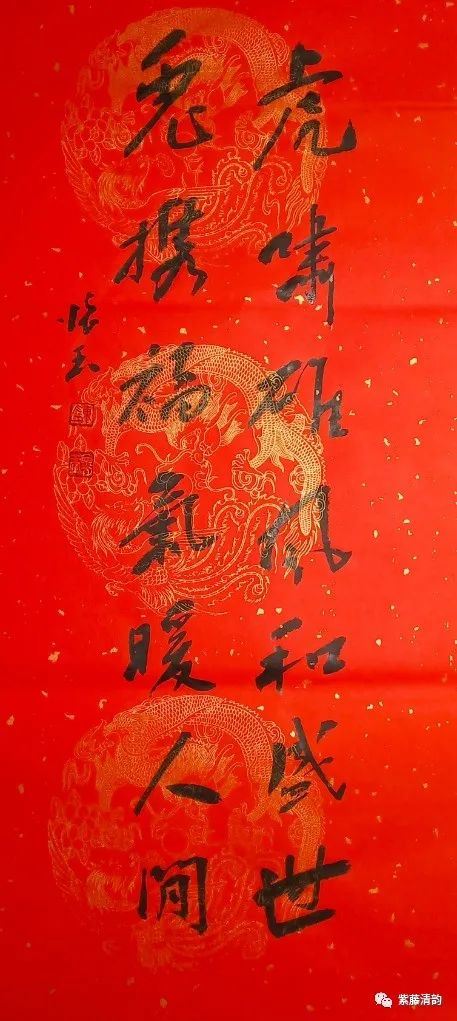 虎啸雄风和盛世
兔携福气暖人间
怀玉
紫藤清韵